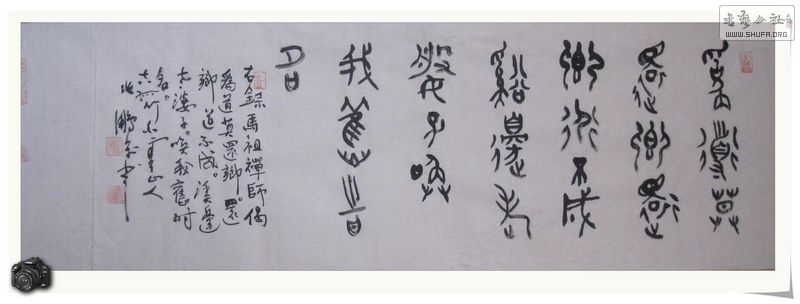 书艺公社
WWW.SHUFA.ORG
為道莫
還鄉還
鄉道不成
谿邊老
婆子喚
我舊時
名
右錄馬祖禪師偈
為道莫還鄉。還
鄉道不成。溪邊
老婆子。喚我舊時
名。
山人
鵬書